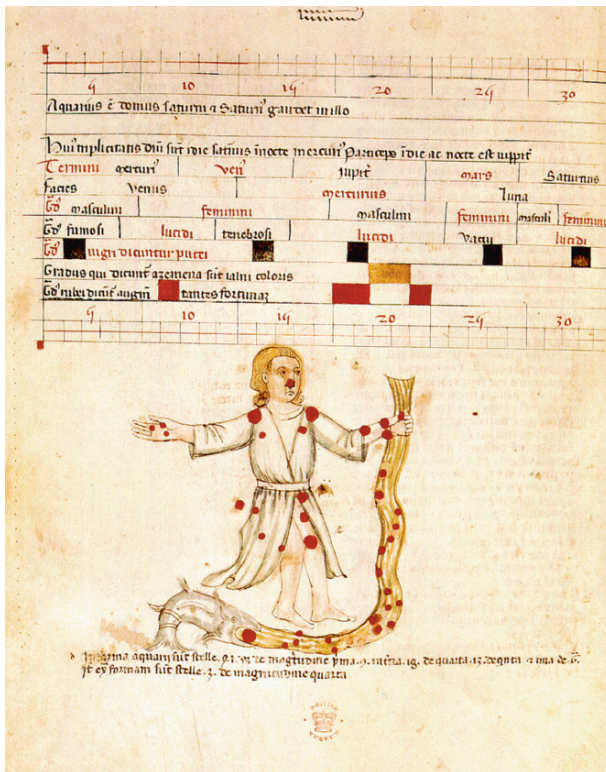 5 10 15 20 25 30
Aquarius ē domus saturni ⁊ Saturnꝰ gaudet in illo
triplicitatis sūt i die saturnus i nocte mercuriꝰ Particeps i die ac nocte est iuppit̄
Termini mercurī venꝰ iupit̄ mars Saturnus
facies venus mercurius luna
Gdꝰ masculini feminini masculini feminini masculī feminini
Gdꝰ fumosi lucidi tenebrosi lucidi vacui lucidi
Gdꝰ nigri dicuntur putei
Gradus qui dicunt̄ azemena sūt coloris
Gdꝰ rubei dicūt̄ augm̄ tantes fortunaz
5 10 15 20 25 30
forma aquarii sūt stelle de magnitudine pma de quarta
formam sūt stelle 3. de magnitudine quarta
BRITISH
MUSEUM